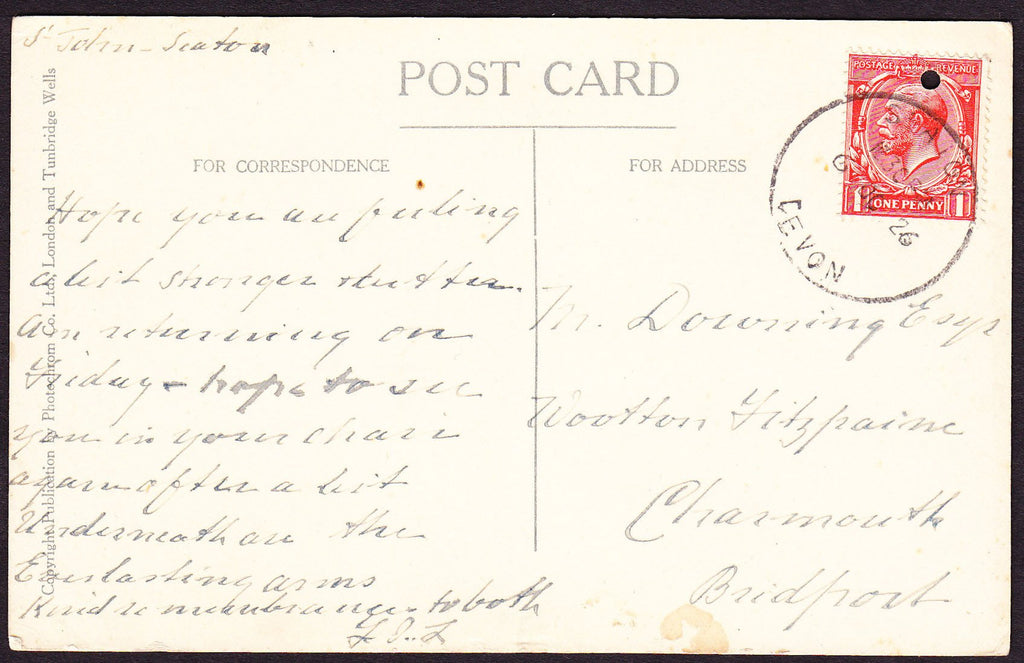 St John - Seaton
POST CARD
FOR CORRESPONDENCE
FOR ADDRESS
Copyright Publication by Photochrom Co. Ltd., London and Tunbridge Wells
Hope you are feeling
a bit stronger & better.
Am returning on
Friday - hope to see
you in your chair
again after a bit
Underneath are the
Everlasting arms
Kind remembrances to both
Mr. Downing Esqr
Wootton Fitzpaine
Charmouth
Bridport
POSTAGE REVENUE
1 ONE PENNY 1
OC 26
DEVON